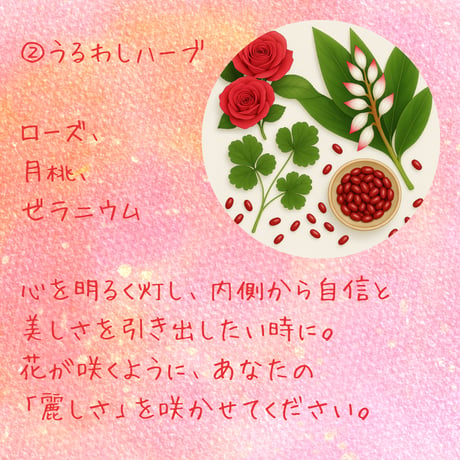 ②うるわしハーブ
ローズ、
月桃、
ゼラニウム
心を明るく灯し、内側から自信と
美しさを引き出したい時に。
花が咲くように、あなたの
「麗しさ」を咲かせてください。